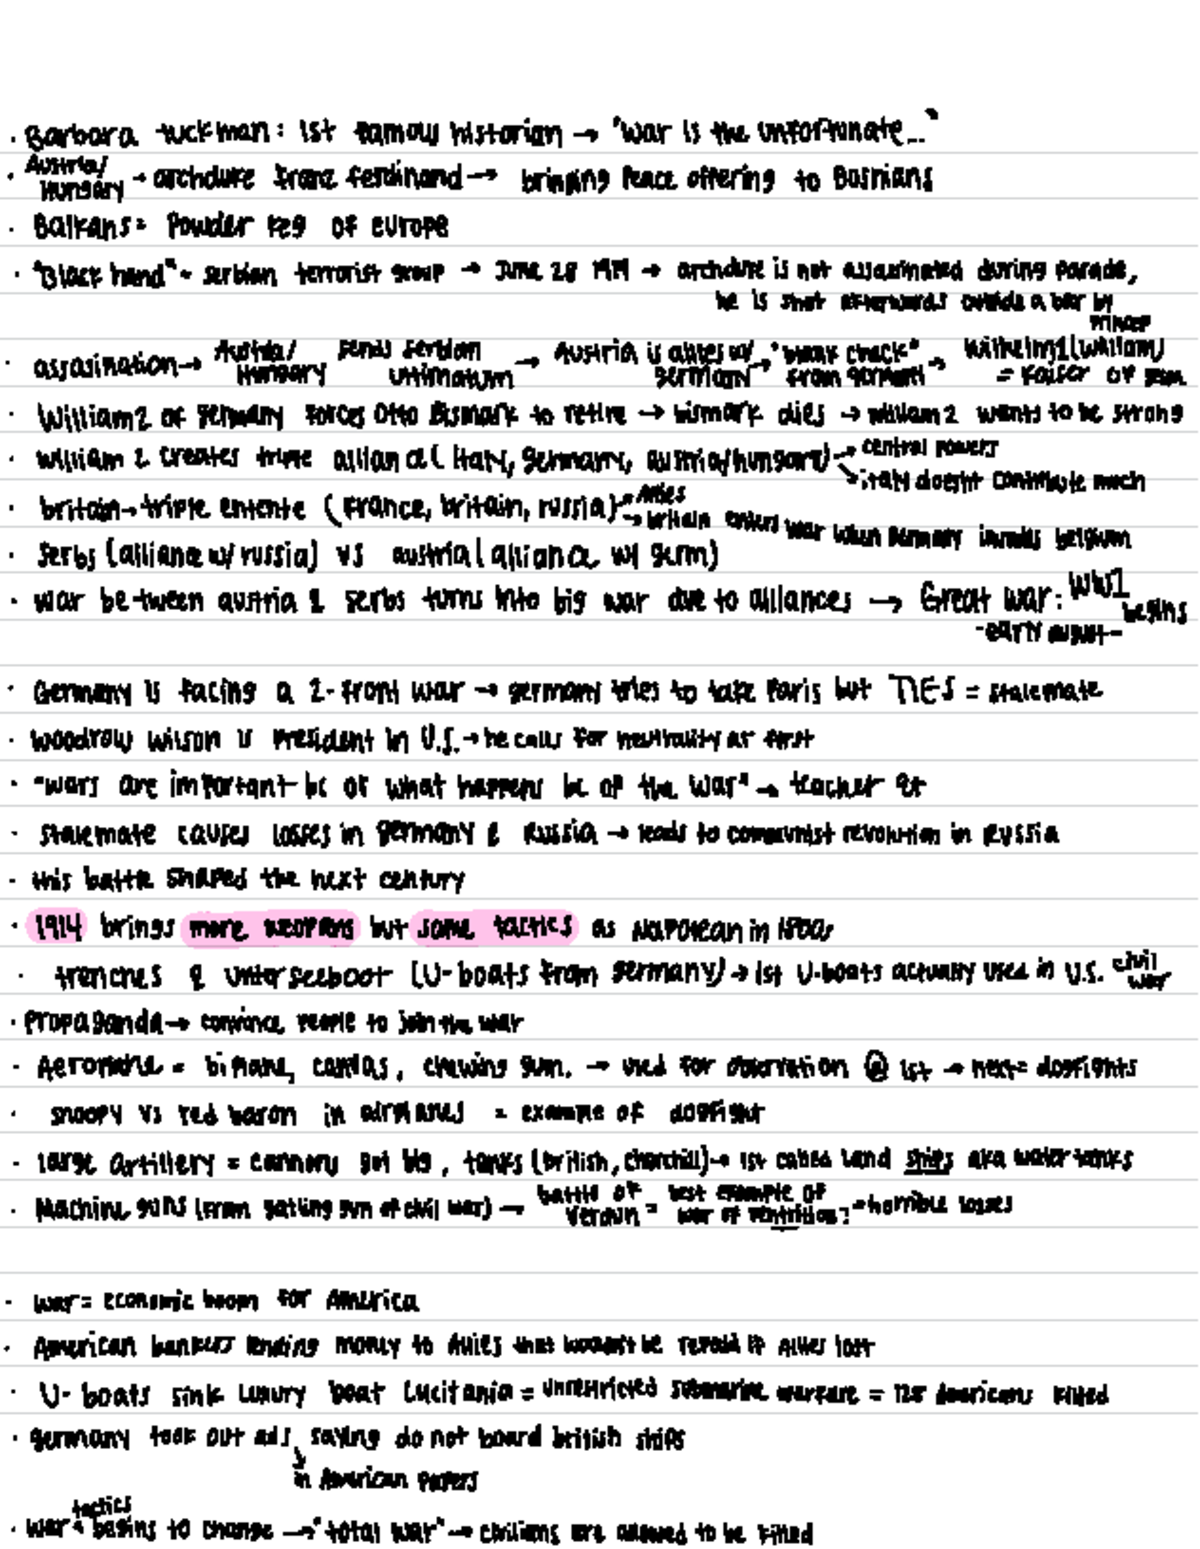 · Barbara tuckman: 1st famous historian → "war is the unfortunate..."
· Austria/Hungary → archduke franz ferdinand → bringing peace offering to Bosnians
· Balkans = Powder keg of europe
· "Black hand" - serbian terrorist group → June 28 1914 → archduke is not assasinated during parade,
he is shot afterwards outside a bar by
princep
· assasination → Austria/Hungary sends serbian ultimatum → Austria is allies w/ germany → "blank check" from germany → Wilhelm2 (william) = kaiser of germ.
· William2 of germany forces Otto Bismark to retire → bismark dies → william2 wants to be strong
· william 2 creates triple alliance (Italy, germany, austria/hungary) → central powers
↘ italy doesnt contribute much
· britain → triple entente (france, britain, russia) → Allies
→ britain enters war when Germany invades belgium
· Serbs (alliance w/ russia) vs austria (alliance w/ germ)
· war between austria & serbs turns into big war due to alliances → Great war: WW1 begins
-early august-
· Germany is facing a 2-front war → germany tries to take Paris but TIES = stalemate
· woodrow wilson is president in U.S. → he calls for neutrality at first
· "wars are important bc of what happens bc of the war" → teacher qt
· stalemate causes losses in germany & Russia → leads to communist revolution in Russia
· this battle shaped the next century
· 1914 brings more weopons but same tactics as Napolean in 1800s
· trenches & unterseeboot (U-boats from germany) → 1st U-boats actually used in U.S. civil war
· Propaganda → convince people to join the war
· Aeroplane = biplane, canvas, chewing gum. → used for observation @ 1st → next = dogfights
· snoopy vs red baron in airplanes = example of dogfight
· large artillery = cannons got big, tanks (british, churchill) → 1st called land ships aka water tanks
· Machine guns (from gatling gun of civil war) → battle of Verdun = best example of war of : → horrible losses
· war = economic boom for America
· American bankers lending money to Allies that wouldn't be repaid if allies lost
· U-boats sink luxury boat Lucitania = unrestricted submarine warfare = 128 Americans killed
· germany took out ads saying do not board british ships
↘ in American papers
· war tactics begins to change → "total war" → civilians are allowed to be killed